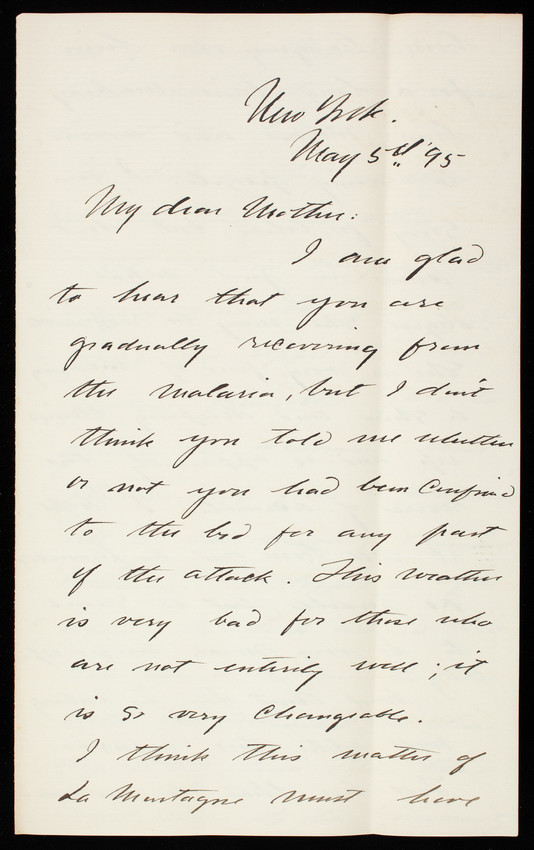 New York.
May 5th '95
My dear Mother:
I am glad
to hear that you are
gradually recovering from
the malaria, but I don't
think you told me whether
or not you had been confined
to the bed for any part
of the attack. This weather
is very bad for those who
are not entirely well; it
is so very changeable.
I think this matter of
La Montagne must have